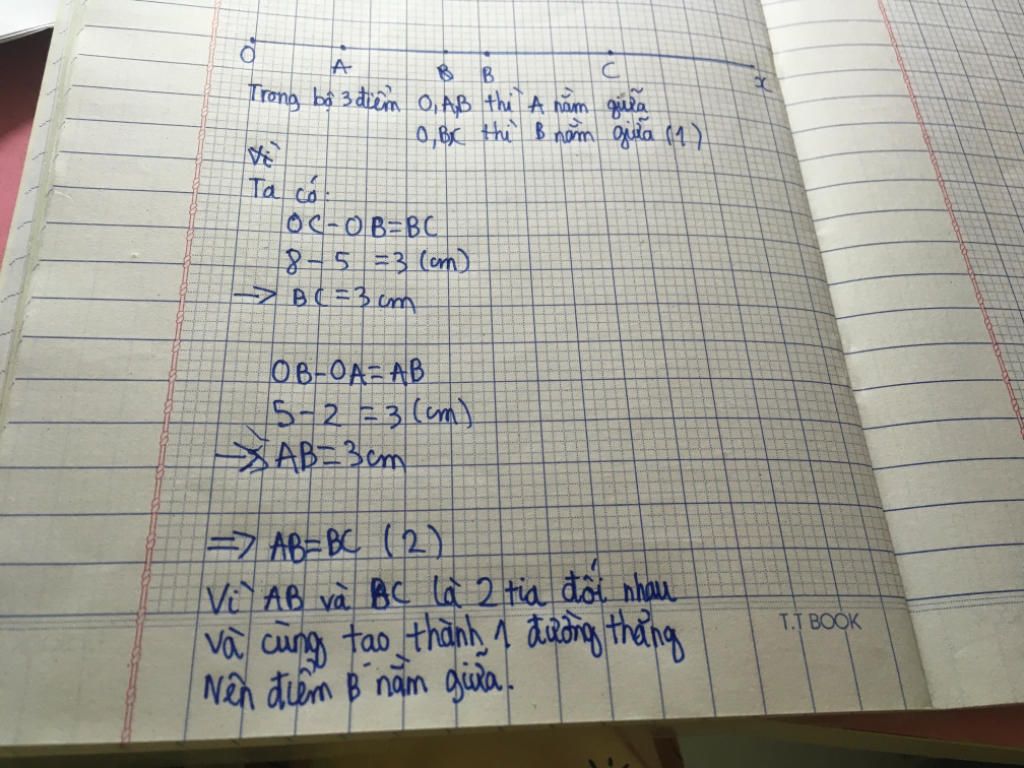 O A B B C x
Trong bộ 3 điểm O,A,B thì A nằm giữa
O,B,C thì B nằm giữa (1)
Vì
Ta có:
OC-OB=BC
8-5 =3 (cm)
-> BC=3cm
OB-OA=AB
5-2 =3 (cm)
-> AB=3cm
=> AB=BC (2)
Vì AB và BC là 2 tia đối nhau
và cùng tạo thành 1 đường thẳng
T.T BOOK
Nên điểm B nằm giữa.